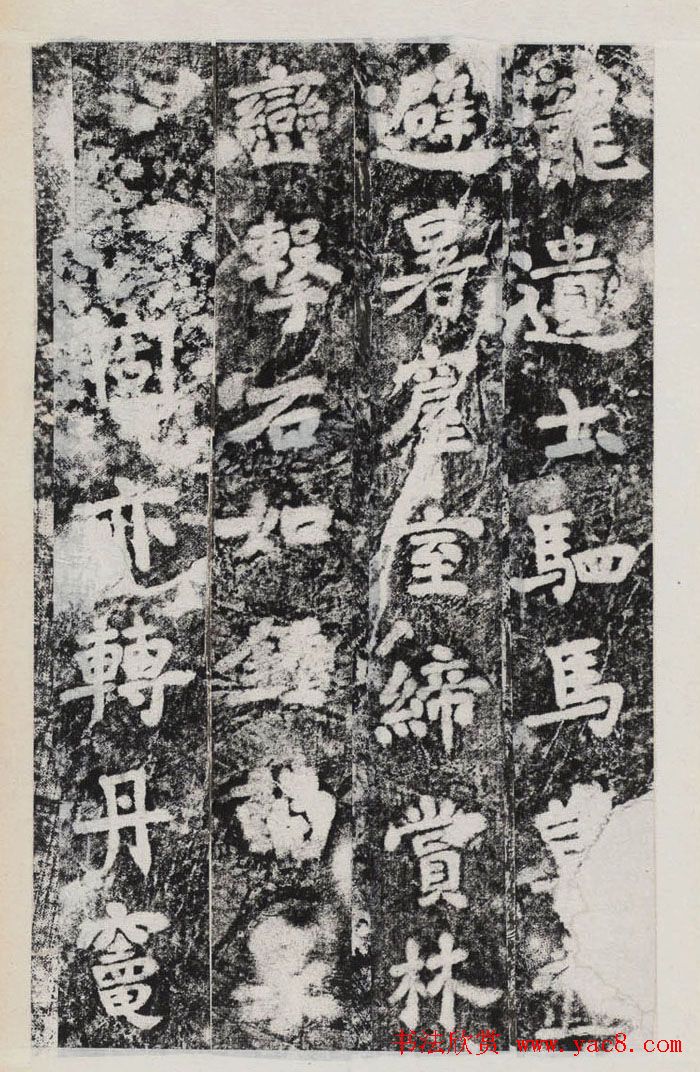 龍遺土駟馬
避暑窟室締賞林
巒擊石如鍾
因亦轉丹竈
书法欣赏 www.yac8.com